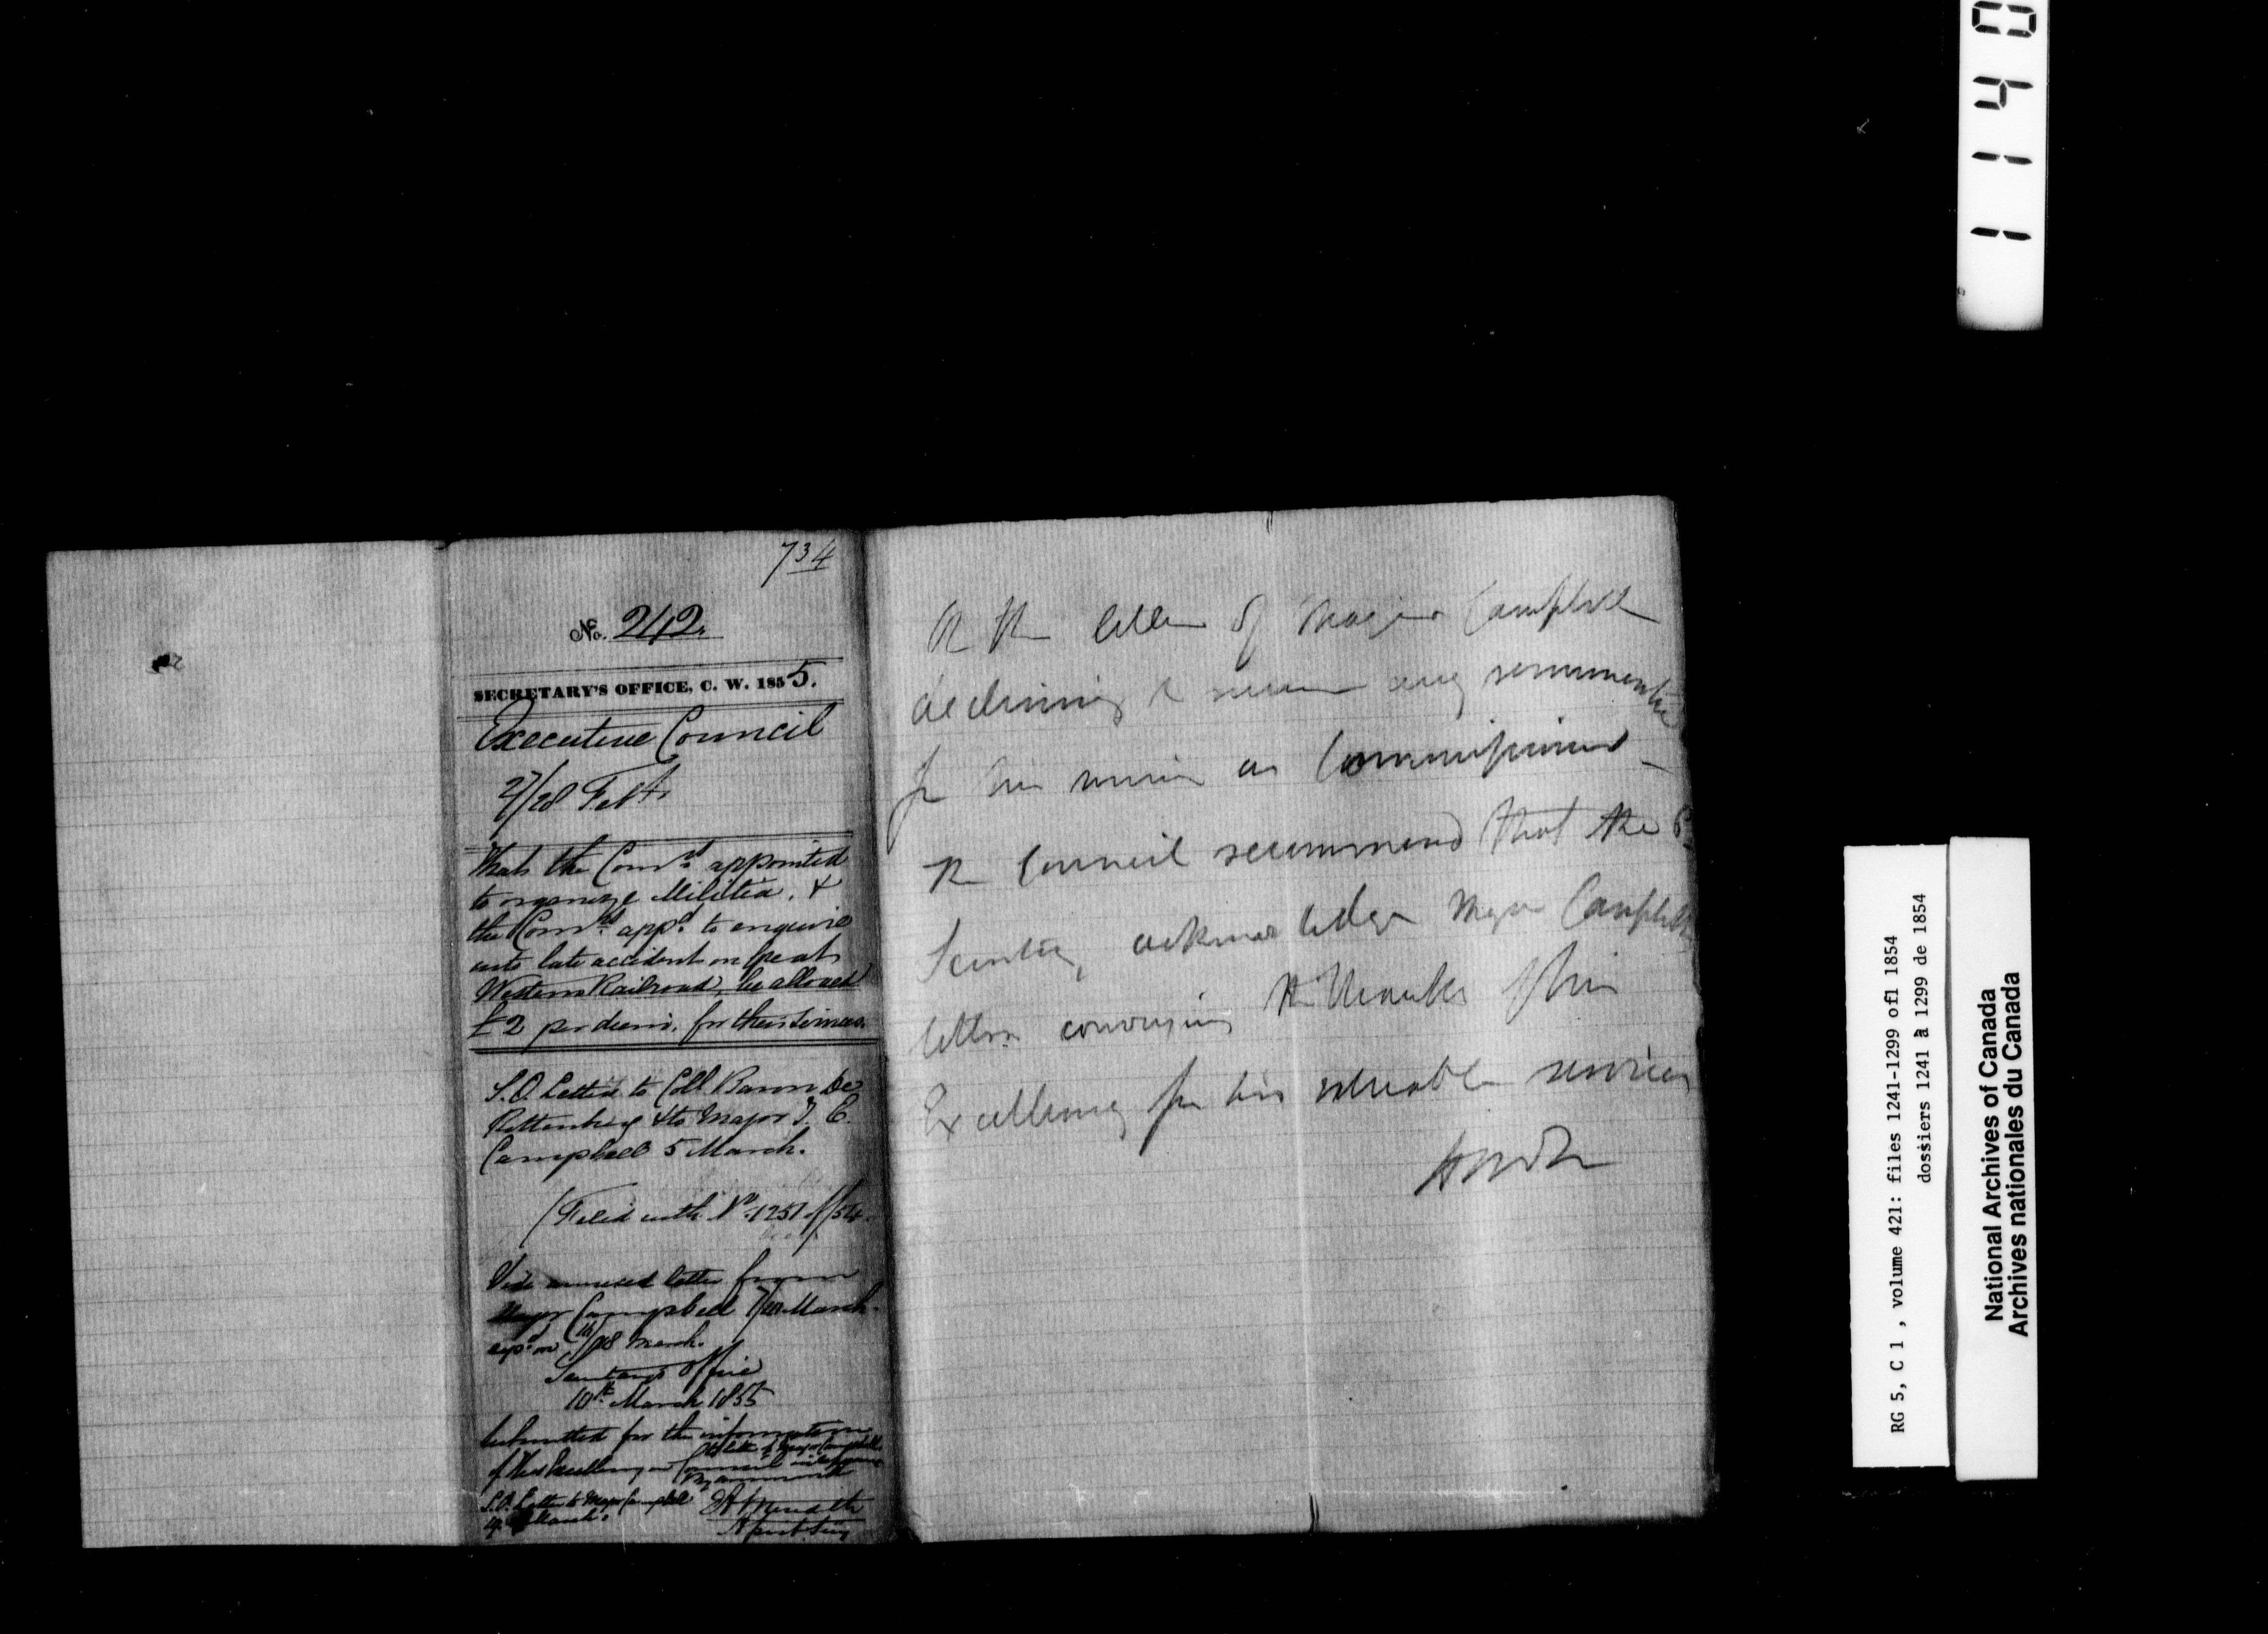 734
No. 242.
SECRETARY'S OFFICE, C. W. 1855.
Executive Council
27/28 Feb.
That the Comrs appointed
to organize Militia, &
the Comrs appd to enquire
into late accident on Great
Western Railroad, be allowed
£2 per diem, for their services.
S.O. Letter to Coll. Baron de
Rottenburg & to Major T. E.
Campbell 5 March.
(Filed with No 1251 of/54.
Vide annexed letter from
Major Campbell 7/10 March
16/18 March.
Secretary's Office
10th March 1855
Submitted for the information
of His Excellency in Council
S.O. Letter to Major Campbell
March.
E A Meredith
Asst Secy
On the letter of Major Campbell
declining to receive any remuneration
for his services as Commissioner –
The Council recommend that the
Secretary acknowledge Major Campbell's
letter conveying the thanks of his
Excellency for his valuable services
11140
RG 5, C 1 , volume 421: files 1241-1299 of1 1854
dossiers 1241 à 1299 de 1854
National Archives of Canada
Archives nationales du Canada